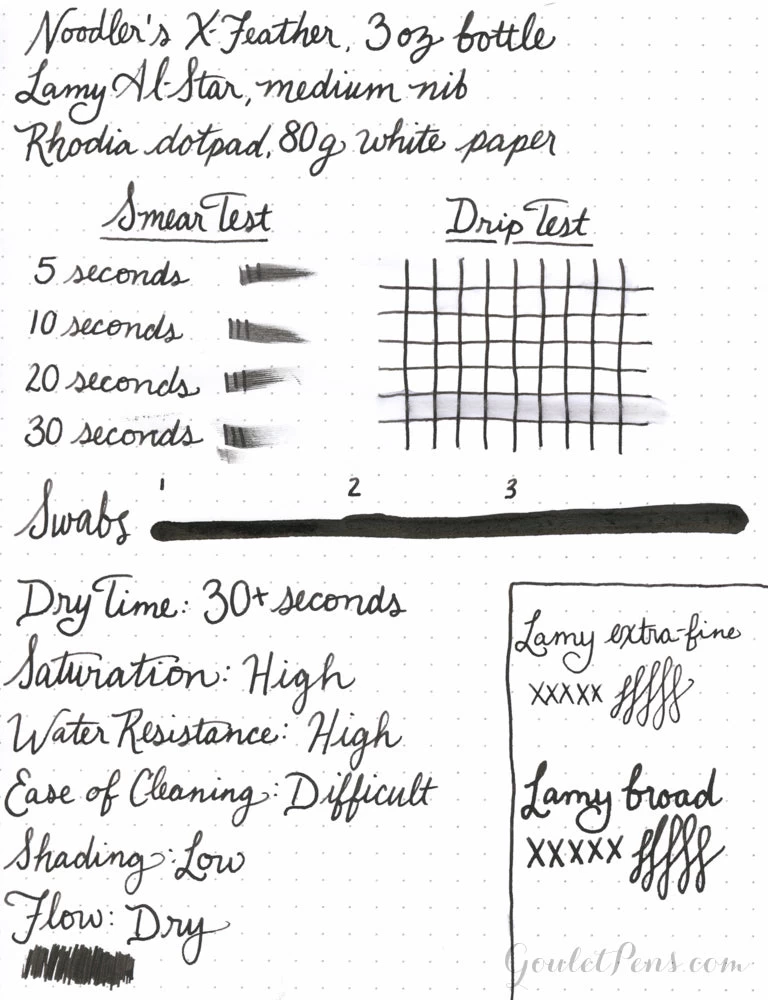 Noodler's X-Feather, 3 oz bottle
Lamy Al-Star, medium nib
Rhodia dotpad, 80g white paper
Smear Test
5 seconds
10 seconds
20 seconds
30 seconds
Drip Test
Swabs 1 2 3
Dry Time: 30+ seconds
Saturation: High
Water Resistance: High
Ease of Cleaning: Difficult
Shading: Low
Flow: Dry
Lamy extra-fine
xxxxx
Lamy broad
xxxxx
GouletPens.com